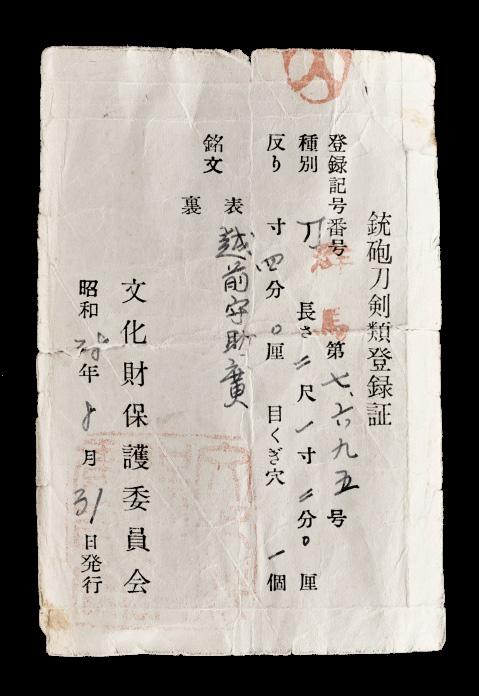 銃砲刀剣類登録証
登録記号番号 群馬 第七、六九五号
種別 刀 長さ 二尺一寸二分〇厘
反り 寸四分〇厘 目くぎ穴 一個
銘文 表 越前守助廣
裏
文化財保護委員会
昭和 年8月31日発行